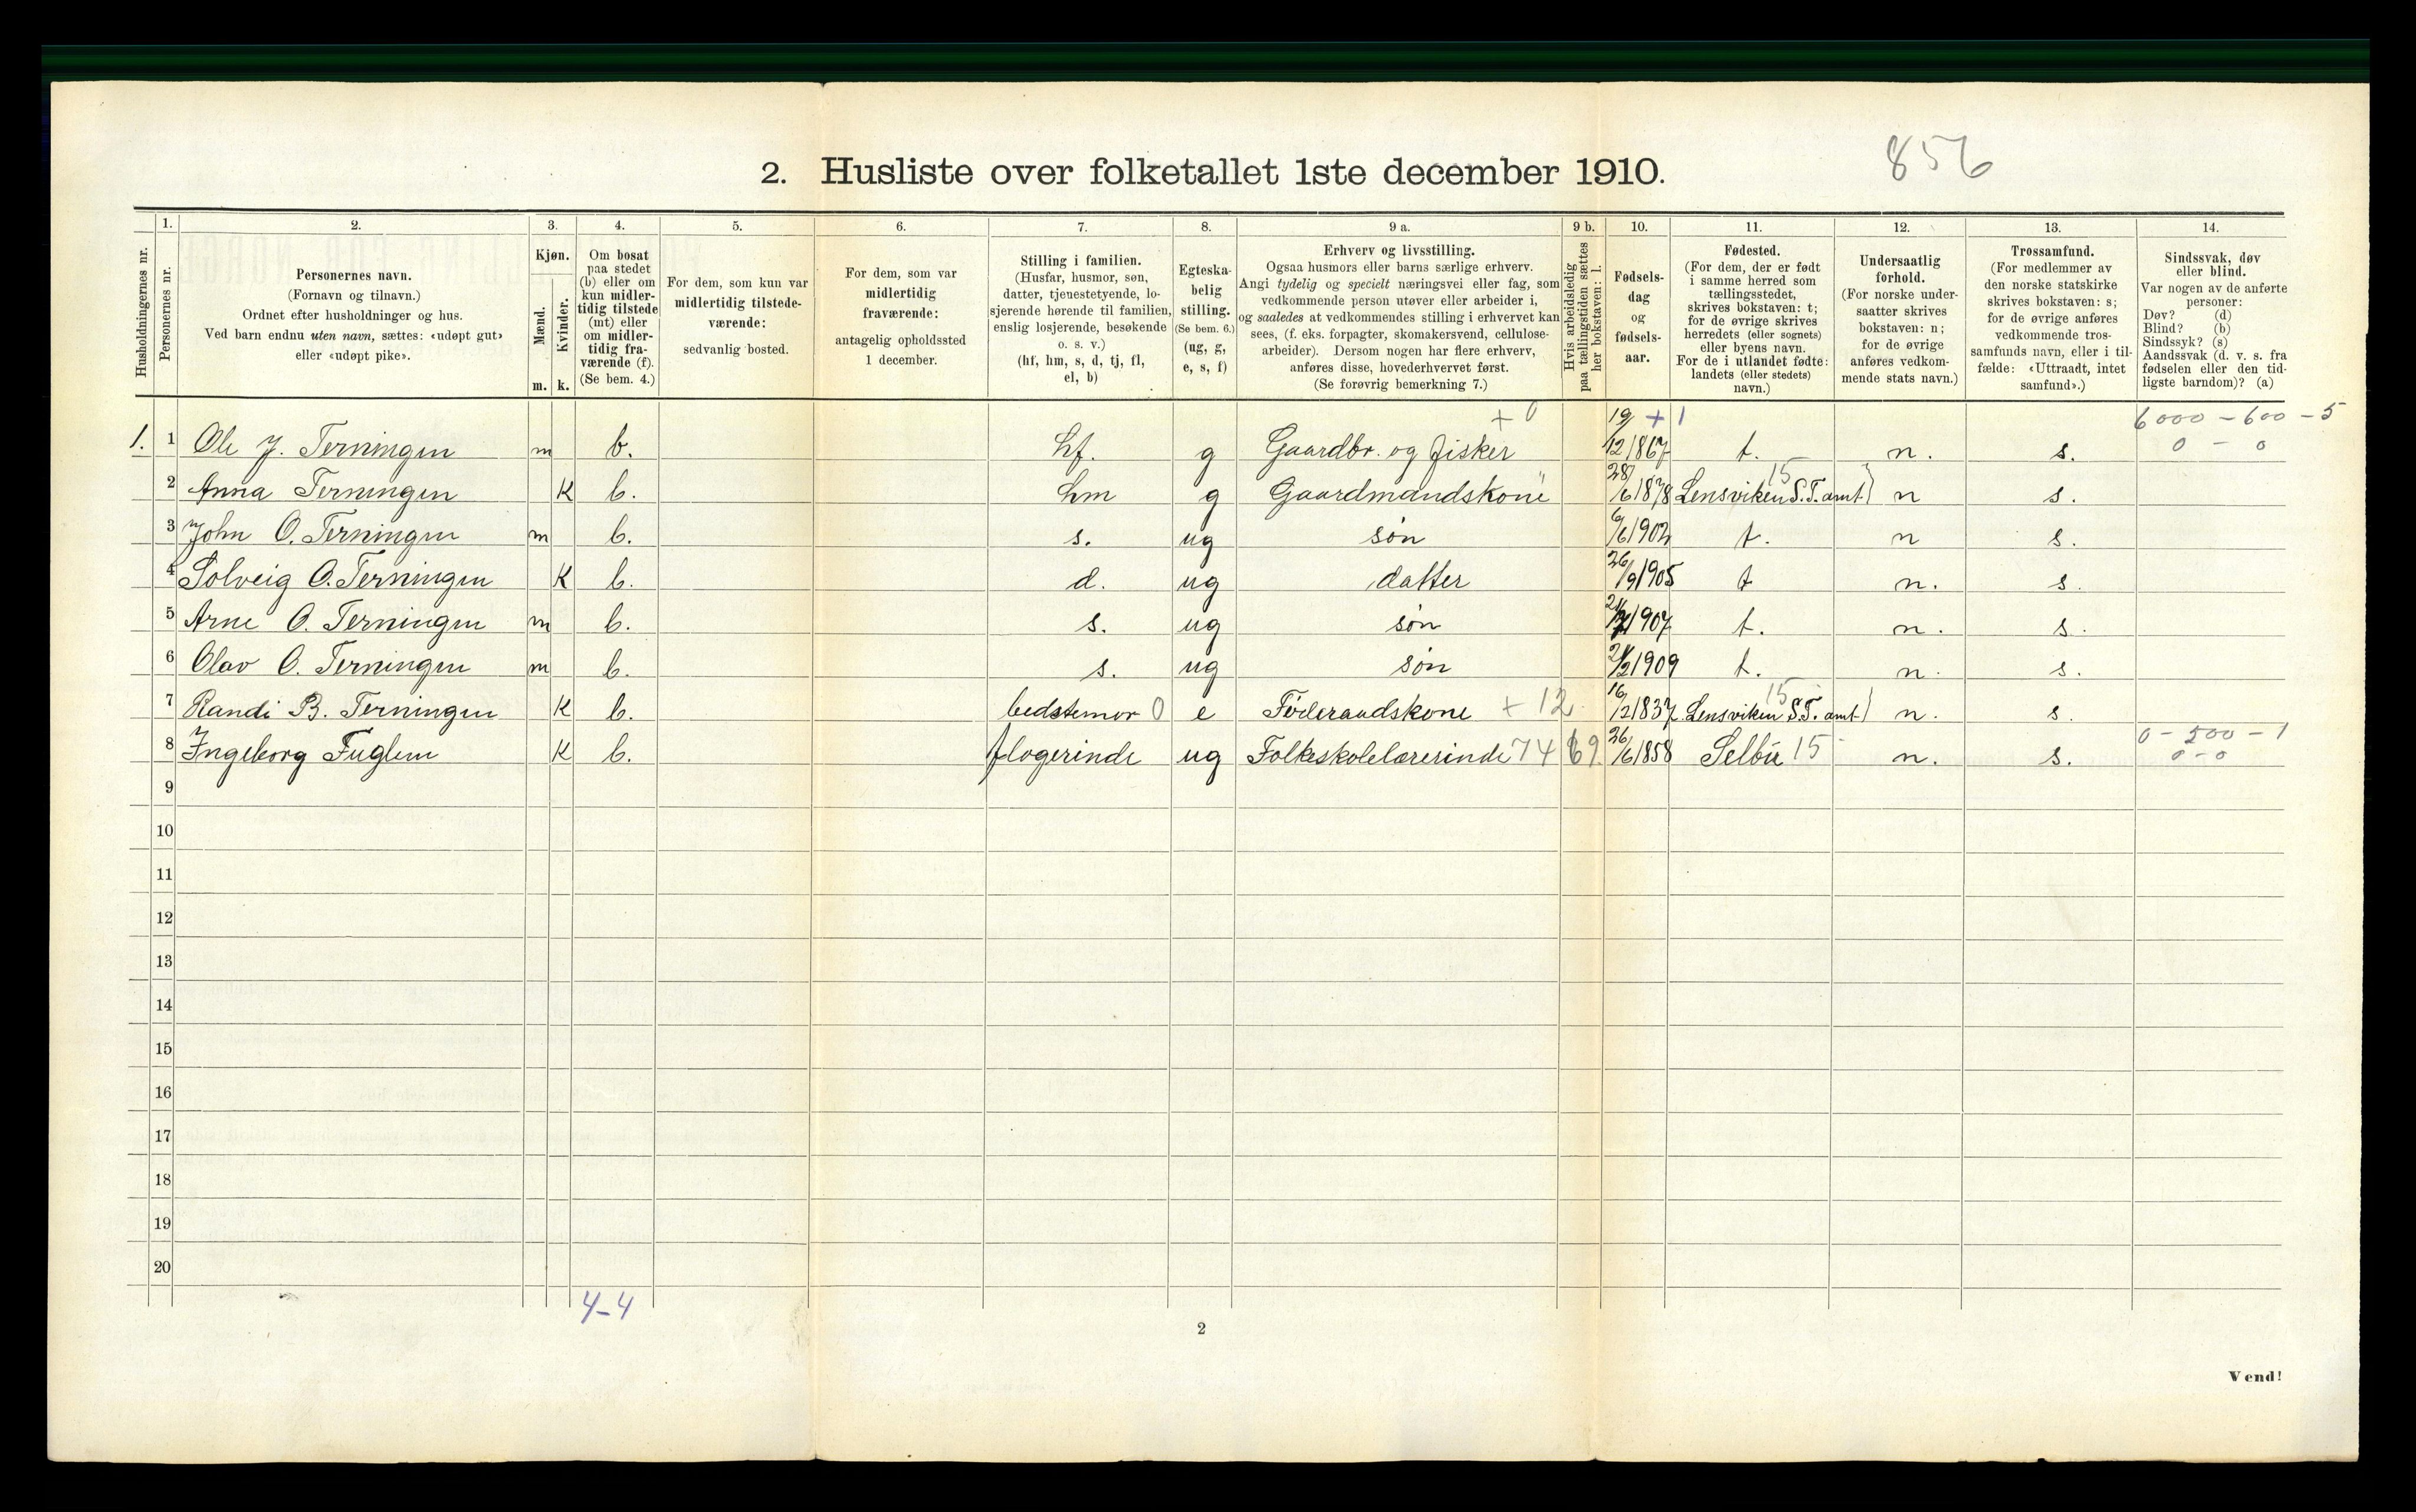 856
2. Husliste over folketallet 1ste december 1910.
Husholdningernes nr.
1.
Personernes nr.
2.
Personernes navn.
(Fornavn og tilnavn.)
Ordnet efter husholdninger og hus.
Ved barn endnu uten navn, sættes: «udøpt gut»
eller «udøpt pike».
3.
Kjøn.
Mænd.
Kvinder.
m. k.
4.
Om bosat
paa stedet
(b) eller om
kun midler-
tidig tilstede
(mt) eller
om midler-
tidig fra-
værende (f).
(Se bem. 4.)
5.
For dem, som kun var
midlertidig tilstede-
værende:
sedvanlig bosted.
6.
For dem, som var
midlertidig
fraværende:
antagelig opholdssted
1 december.
7.
Stilling i familien.
(Husfar, husmor, søn,
datter, tjenestetyende, lo-
sjerende hørende til familien,
enslig losjerende, besøkende
o. s. v.)
(hf, hm, s, d, tj, fl,
el, b)
8.
Egteska-
belig
stilling.
(Se bem. 6.)
(ug, g,
e, s, f)
9 a.
Erhverv og livsstilling.
Ogsaa husmors eller barns særlige erhverv.
Angi tydelig og specielt næringsvei eller fag, som
vedkommende person utøver eller arbeider i,
og saaledes at vedkommendes stilling i erhvervet kan
sees, (f. eks. forpagter, skomakersvend, cellulose-
arbeider). Dersom nogen har flere erhverv,
anføres disse, hovederhvervet først.
(Se forøvrig bemerkning 7.)
9 b.
Hvis arbeidsledig
paa tællingstiden sættes
her bokstaven: l.
10.
Fødsels-
dag
og
fødsels-
aar.
11.
Fødested.
(For dem, der er født
i samme herred som
tællingsstedet,
skrives bokstaven: t;
for de øvrige skrives
herredets (eller sognets)
eller byens navn.
For de i utlandet fødte:
landets (eller stedets)
navn.)
12.
Undersaatlig
forhold.
(For norske under-
saatter skrives
bokstaven: n;
for de øvrige
anføres vedkom-
mende stats navn.)
13.
Trossamfund.
(For medlemmer av
den norske statskirke
skrives bokstaven: s;
for de øvrige anføres
vedkommende tros-
samfunds navn, eller i til-
fælde: «Uttraadt, intet
samfund».)
14.
Sindssvak, døv
eller blind.
Var nogen av de anførte
personer:
Døv? (d)
Blind? (b)
Sindssyk? (s)
Aandssvak (d. v. s. fra
fødselen eller den tid-
ligste barndom)? (a)
+ 0 + 1 6000 – 600 – 5
1. 1 Ole J. Terningen m b. hf. g Gaardbr. og fisker 19/12 1867 t. n. s. 0 – 0
2 Anna Terningen K b. hm g Gaardmandskone 28/6 1878 Lensviken S.T. amt 15 n s.
3 John O. Terningen m b. s. ug søn 6/6 1902 t. n s.
4 Solveig O. Terningen K b. d. ug datter 26/9 1905 t n. s.
5 Arne O. Terningen m b. s. ug søn 1907 t. n. s.
6 Olav O. Terningen m b. s. ug søn 1909 t. n. s.
7 Randi B. Terningen K b. bedstemor 0 e Føderaadskone + 12 16/12 1837 Lensviken S.T. amt 15 n. s.
8 Ingeborg Fuglem K b. flogerinde ug Folkeskolelærerinde 74 69 26/6 1858 Selbu 15 n. s. 0 – 500 – 1
0 – 0
9
10
11
12
13
14
15
16
17
18
19
20
4–4
2
Vend!